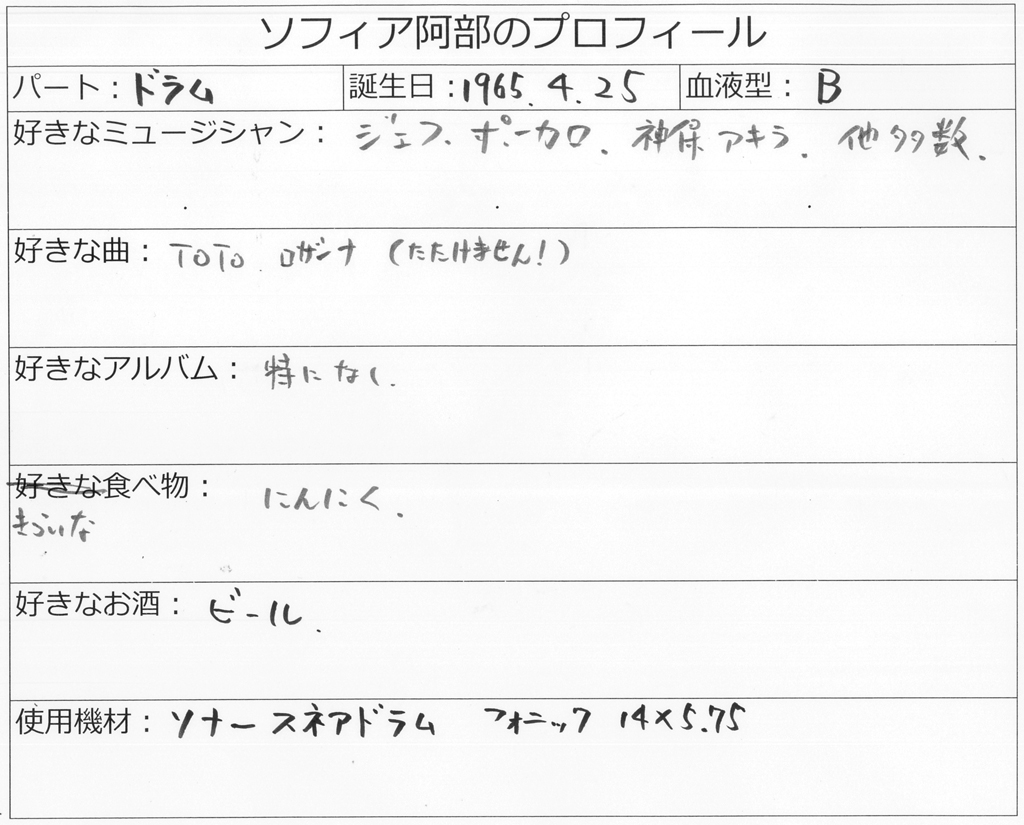 ソフィア阿部のプロフィール
パート：ドラム 誕生日：1965.4.25 血液型： B
好きなミュージシャン： ジェフ、ポーカロ、神保アキラ、他多数.
好きな曲： TOTO ロザーナ (たたけません!)
好きなアルバム： 特になし.
好きな食べ物： にんにく.
きらいな
好きなお酒： ビール.
使用機材： ソナー スネアドラム フォニック 14×5.75